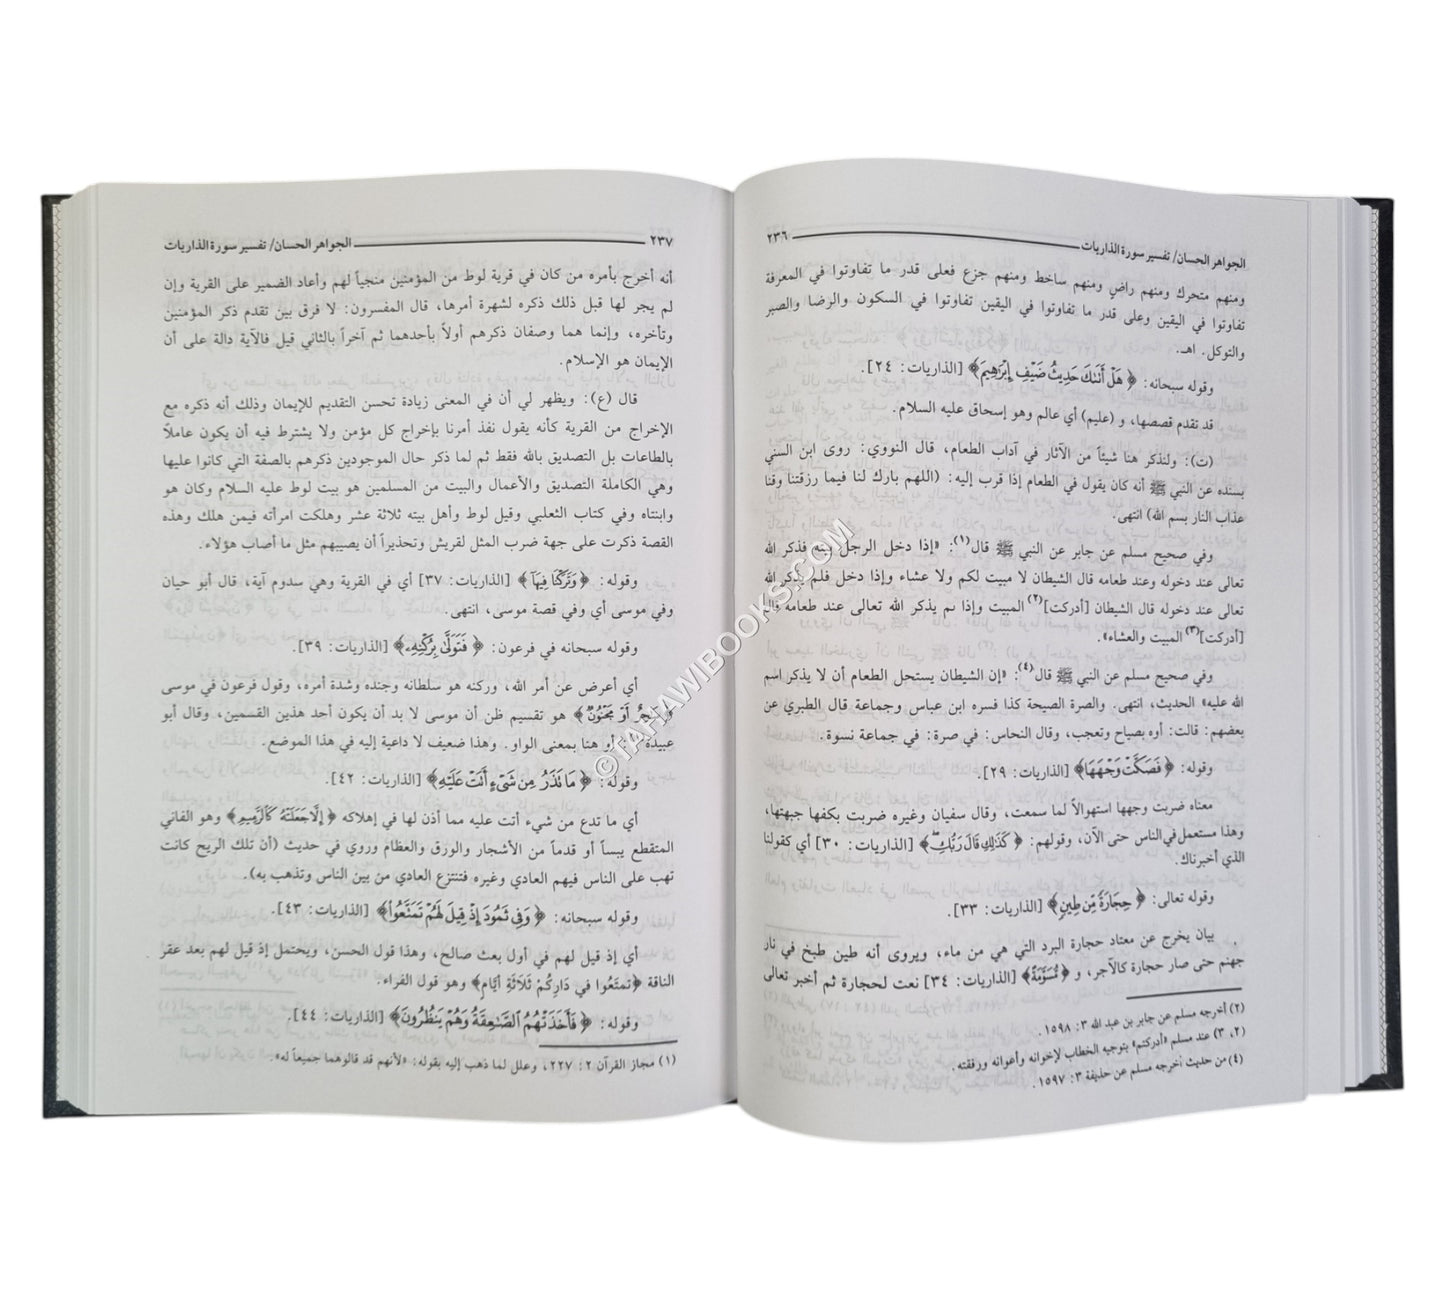 الجواهر الحسان/ تفسير سورة الذاريات ٢٣٦
ومنهم متحرك ومنهم راضٍ ومنهم ساخط ومنهم جزع فعلى قدر ما تفاوتوا في المعرفة
تفاوتوا في اليقين وعلى قدر ما تفاوتوا في اليقين تفاوتوا في السكون والرضا والصبر
والتوكل. اهـ.
وقوله سبحانه: ﴿ هَلْ أَتَىٰكَ حَدِيثُ ضَيْفِ إِبْرَٰهِيمَ﴾ [الذاريات: ٢٤].
قد تقدم قصصها، و (عليم) أي عالم وهو إسحاق عليه السلام.
(ت): ولنذكر هنا شيئاً من الآثار في آداب الطعام، قال النووي: روى ابن السني
بسنده عن النبي ﷺ أنه كان يقول في الطعام إذا قرب إليه: (اللهم بارك لنا فيما رزقتنا وقنا
عذاب النار بسم الله) انتهى.
وفي صحيح مسلم عن جابر عن النبي ﷺ قال(١): «إذا دخل الرجل بيته فذكر الله
تعالى عند دخوله وعند طعامه قال الشيطان لا مبيت لكم ولا عشاء وإذا دخل فلم يذكر الله
تعالى عند دخوله قال الشيطان [أدركت](٢) المبيت وإذا لم يذكر الله تعالى عند طعامه قال
[أدركت](٣) المبيت والعشاء».
وفي صحيح مسلم عن النبي ﷺ قال(٤): «إن الشيطان يستحل الطعام أن لا يذكر اسم
الله عليه» الحديث، انتهى. والصرة الصيحة كذا فسره ابن عباس وجماعة قال الطبري عن
بعضهم: قالت: أوه بصياح وتعجب، وقال النحاس: في صرة: في جماعة نسوة.
وقوله: ﴿ فَصَكَّتْ وَجْهَهَا﴾ [الذاريات: ٢٩].
معناه ضربت وجهها استهوالاً لما سمعت، وقال سفيان وغيره ضربت بكفها جبهتها،
وهذا مستعمل في الناس حتى الآن، وقولهم: ﴿ كَذَٰلِكِ قَالَ رَبُّكِ ﴾ [الذاريات: ٣٠] أي كقولنا
الذي أخبرناك.
وقوله تعالى: ﴿ حِجَارَةً مِّن طِينٍ﴾ [الذاريات: ٣٣].
بيان يخرج عن معتاد حجارة البرد التي هي من ماء، ويروى أنه طين طبخ في نار
جهنم حتى صار حجارة كالآجر، و ﴿ مُّسَوَّمَةً﴾ [الذاريات: ٣٤] نعت لحجارة ثم أخبر تعالى
(٢) أخرجه مسلم عن جابر بن عبد الله ٣: ١٥٩٨.
(٢، ٣) عند مسلم «أدركتم» بتوجيه الخطاب لإخوانه وأعوانه ورفقته.
(٤) من حديث أخرجه مسلم عن حذيفة ٣: ١٥٩٧.
٢٣٧ الجواهر الحسان/ تفسير سورة الذاريات
أنه أخرج بأمره من كان في قرية لوط من المؤمنين منجياً لهم وأعاد الضمير على القرية وإن
لم يجر لها قبل ذلك ذكره لشهرة أمرها، قال المفسرون: لا فرق بين تقدم ذكر المؤمنين
وتأخره، وإنما هما وصفان ذكرهم أولاً بأحدهما ثم آخراً بالثاني قيل فالآية دالة على أن
الإيمان هو الإسلام.
قال (ع): ويظهر لي أن في المعنى زيادة تحسن التقديم للإيمان وذلك أنه ذكره مع
الإخراج من القرية كأنه يقول نفذ أمرنا بإخراج كل مؤمن ولا يشترط فيه أن يكون عاملاً
بالطاعات بل التصديق بالله فقط ثم لما ذكر حال الموجودين ذكرهم بالصفة التي كانوا عليها
وهي الكاملة التصديق والأعمال والبيت من المسلمين هو بيت لوط عليه السلام وكان هو
وابنتاه وفي كتاب الثعلبي وقيل لوط وأهل بيته ثلاثة عشر وهلكت امرأته فيمن هلك وهذه
القصة ذكرت على جهة ضرب المثل لقريش وتحذيراً أن يصيبهم مثل ما أصاب هؤلاء.
وقوله: ﴿ وَتَرَكْنَا فِيهَآ﴾ [الذاريات: ٣٧] أي في القرية وهي سدوم آية، قال أبو حيان
وفي موسى أي وفي قصة موسى، انتهى.
وقوله سبحانه في فرعون: ﴿ فَتَوَلَّىٰ بِرُكْنِهِۦ﴾ [الذاريات: ٣٩].
أي أعرض عن أمر الله، وركنه هو سلطانه وجنده وشدة أمره، وقول فرعون في موسى
﴿ سَٰحِرٌ أَوْ مَجْنُونٌ﴾ هو تقسيم ظن أن موسى لا بد أن يكون أحد هذين القسمين، وقال أبو
عبيدة(١) أو هنا بمعنى الواو. وهذا ضعيف لا داعية إليه في هذا الموضع.
وقوله: ﴿ مَا تَذَرُ مِن شَىْءٍ أَتَتْ عَلَيْهِ﴾ [الذاريات: ٤٢].
أي ما تدع من شيء أتت عليه مما أذن لها في إهلاكه ﴿ إِلَّا جَعَلَتْهُ كَٱلرَّمِيمِ﴾ وهو الفاني
المتقطع يبساً أو قدماً من الأشجار والورق والعظام وروي في حديث (أن تلك الريح كانت
تهب على الناس فيهم العادي وغيره فتنتزع العادي من بين الناس وتذهب به).
وقوله سبحانه: ﴿ وَفِى ثَمُودَ إِذْ قِيلَ لَهُمْ تَمَتَّعُوا۟﴾ [الذاريات: ٤٣].
أي إذ قيل لهم في أول بعث صالح، وهذا قول الحسن، ويحتمل إذ قيل لهم بعد عقر
الناقة ﴿تمتعوا في دَارِكُمْ ثَلَاثَةَ أَيَّامٍ﴾ وهو قول الفراء.
وقوله: ﴿ فَأَخَذَتْهُمُ ٱلصَّٰعِقَةُ وَهُمْ يَنظُرُونَ﴾ [الذاريات: ٤٤].
(١) مجاز القرآن ٢: ٢٢٧، وعلل لما ذهب إليه بقوله: «لأنهم قد قالوهما جميعاً له».
©TAHAWIBOOKS.COM